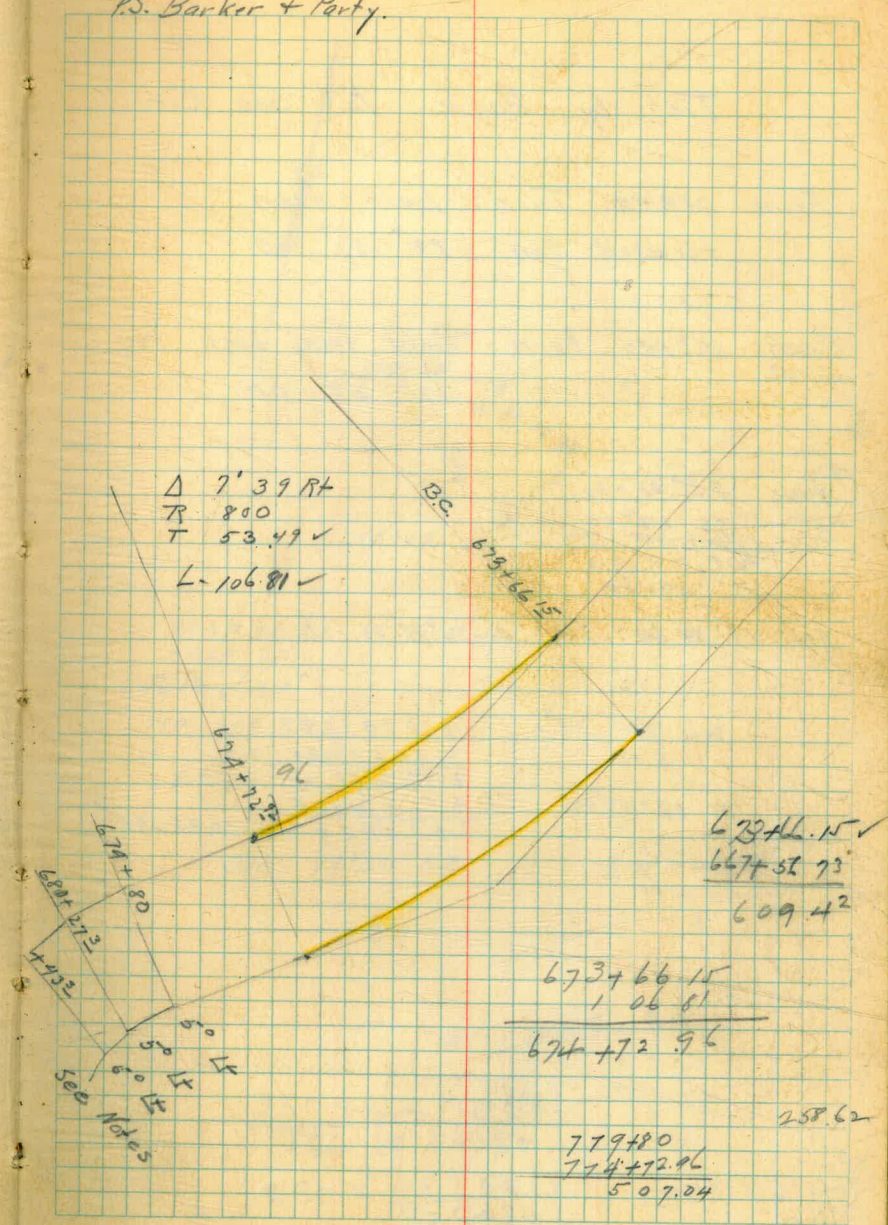 P.S. Barker & Party.
Δ 7° 39 Rt
R 800
T 53.49 ✓
L - 106.81 ✓
B.C.
673+66 15
674+72 92
96
679+80
680+27 3
+43 3
5° Lt
5° Lt
6° Lt
See Notes
673+66.15 ✓
667+56 73
609.42
673+66 15
1 06 81
674+72.96
258.62
779+80
774+72.96
507.04